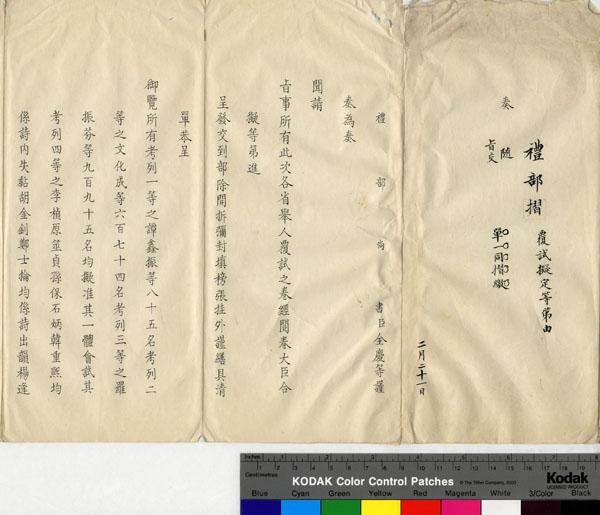 奏
禮部摺 覆試擬定等第由
隨
旨交
單一同摺繳
二月二十一日
禮部尚書臣全慶等謹
奏為奏
聞請
旨事所有此次各省舉人覆試之卷經閱卷大臣公
擬等第進
呈發交到部除開拆彌封填榜張挂外謹繕具清
單恭呈
御覽所有考列一等之譚鑫振等八十五名考列二
等之文化成等六百七十四名考列三等之羅
振芬等九百九十五名均擬准其一體會試其
考列四等之李楨原筮貞孫保石炳韓重熙均
係詩內失黏胡金釗鄭士掄均係詩出韻楊逢
Inches
Centimetres
KODAK Color Control Patches © The Tiffen Company, 2000
Kodak
LICENSED PRODUCT
Blue Cyan Green Yellow Red Magenta White 3/Color Black